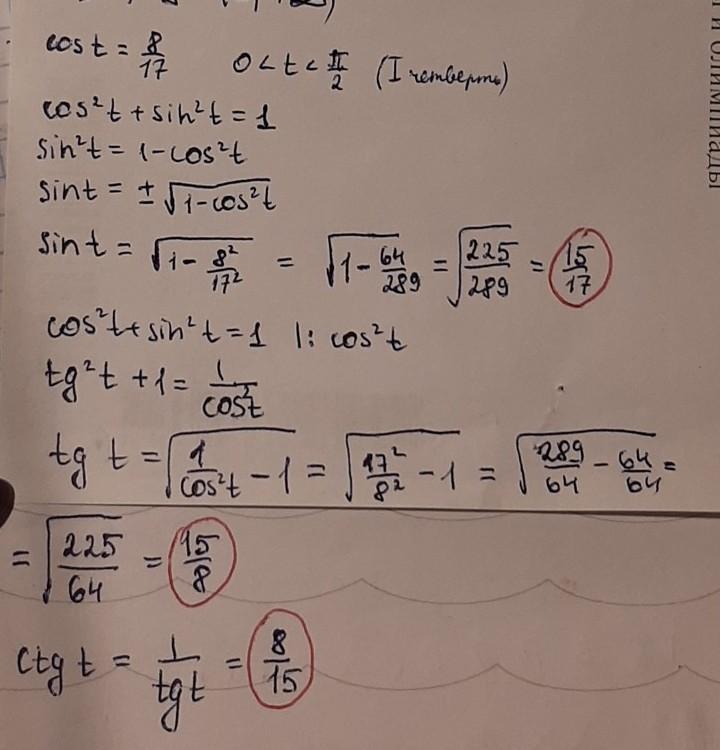 cos t = 8/17 0 < t < π/2 (I четверть)
cos²t + sin²t = 1
sin²t = 1 - cos²t
sin t = ± √(1 - cos²t)
sin t = √(1 - 8²/17²) = √(1 - 64/289) = √(225/289) = 15/17
cos²t + sin²t = 1 |: cos²t
tg²t + 1 = 1/cos²t
tg t = √(1/cos²t - 1) = √(17²/8² - 1) = √(289/64 - 64/64) =
= √(225/64) = 15/8
ctg t = 1/tgt = 8/15
ОЛИМПИАДЫ